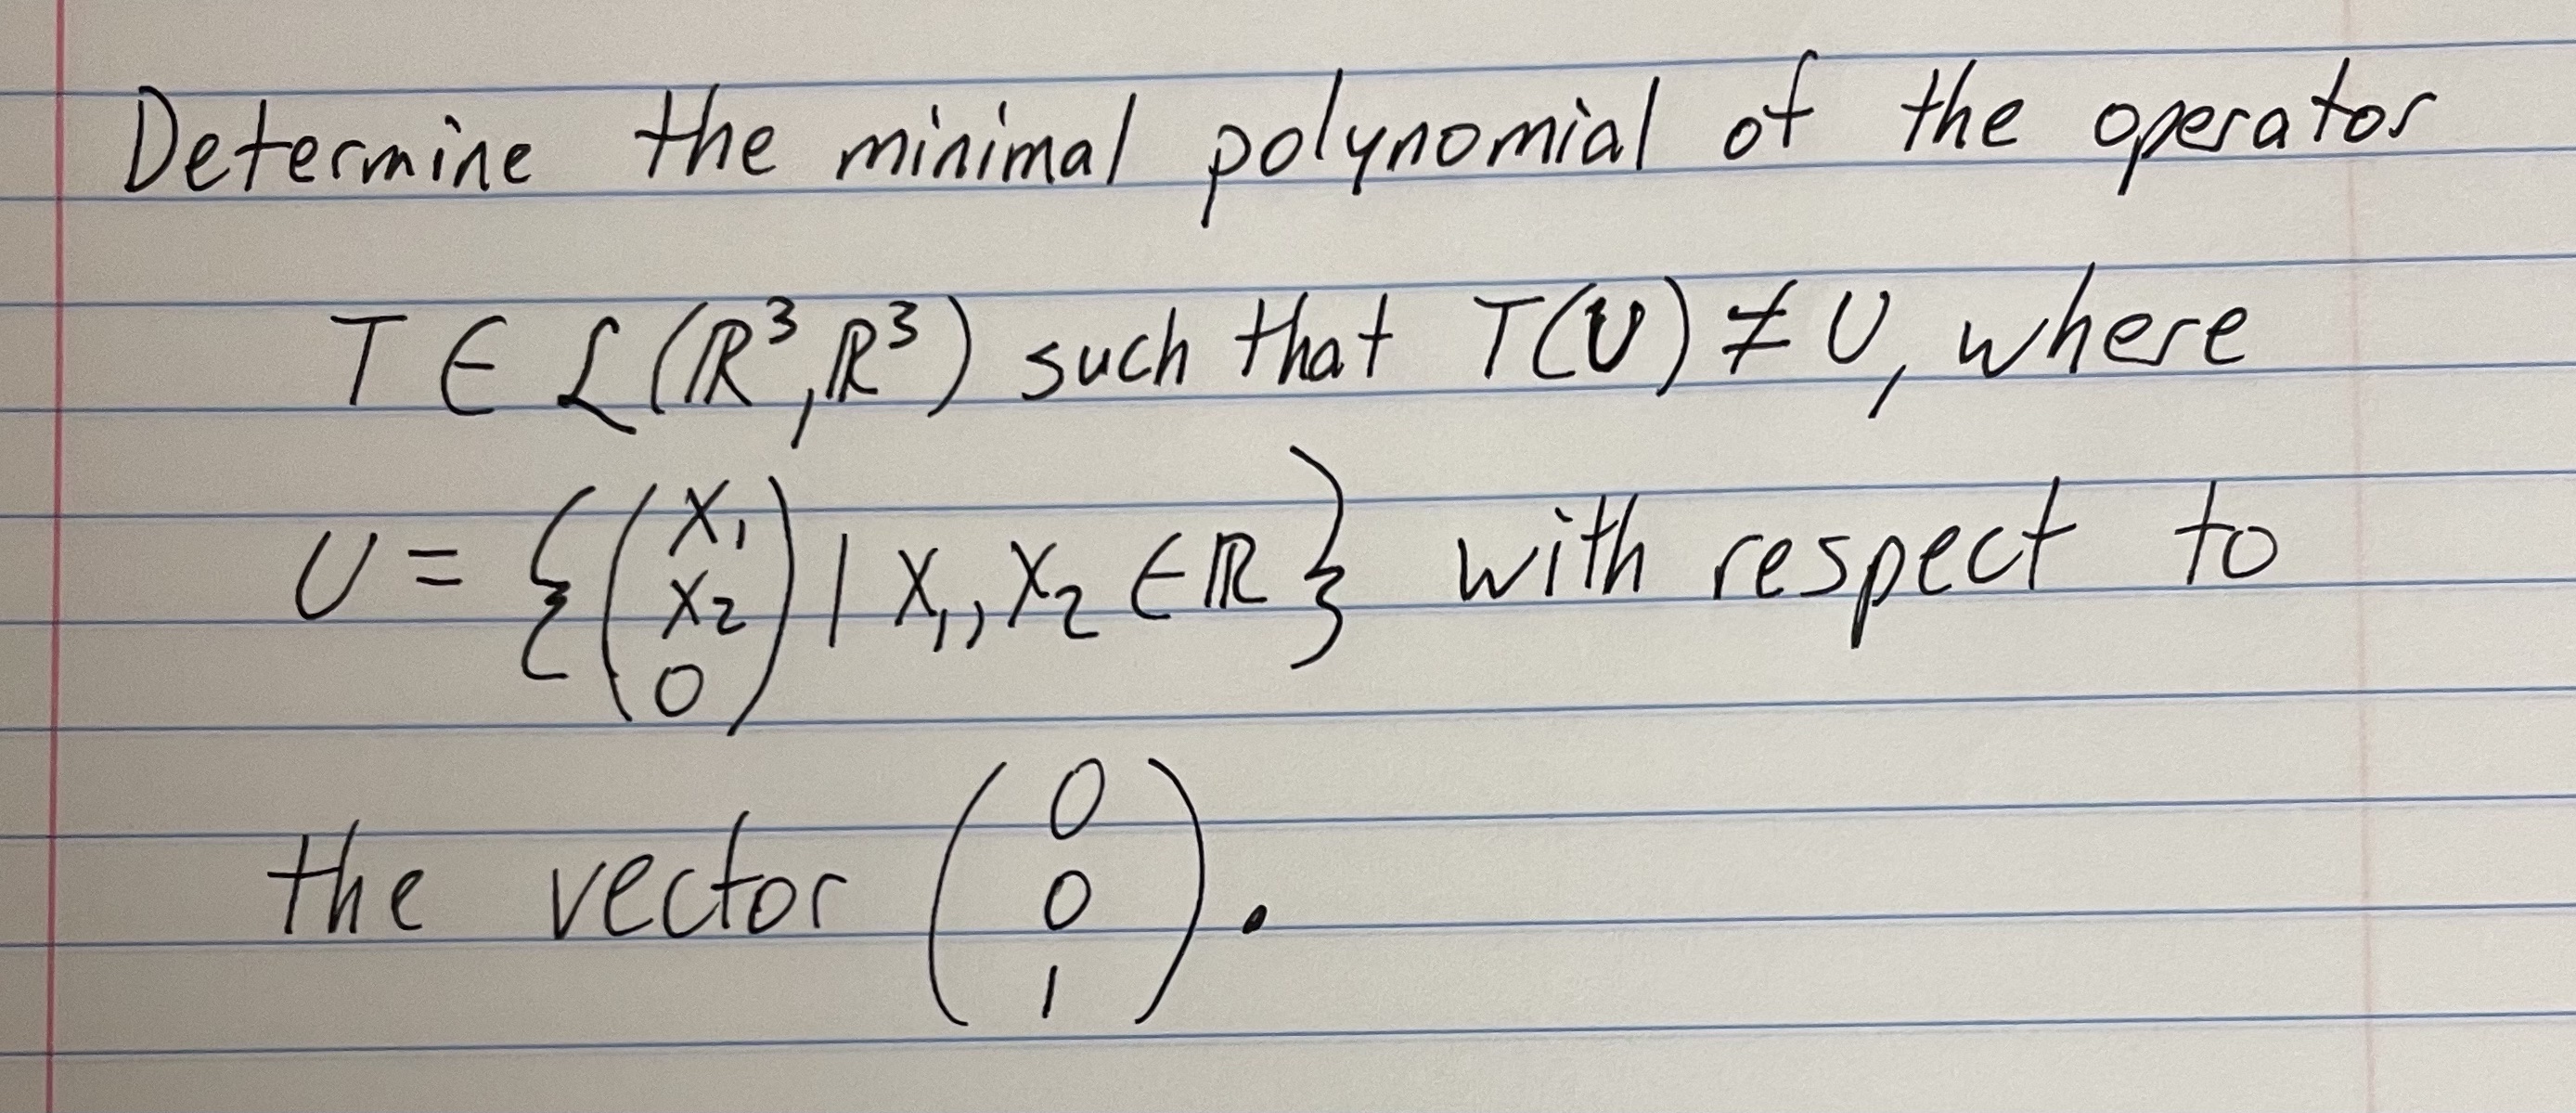 Determine the minimal polynomial of the operator
T ∈ ℒ(ℝ³,ℝ³) such that T(U) ≠ U, where
U = {(x₁ x₂ 0) | x₁, x₂ ∈ ℝ} with respect to
the vector (0 0 1).